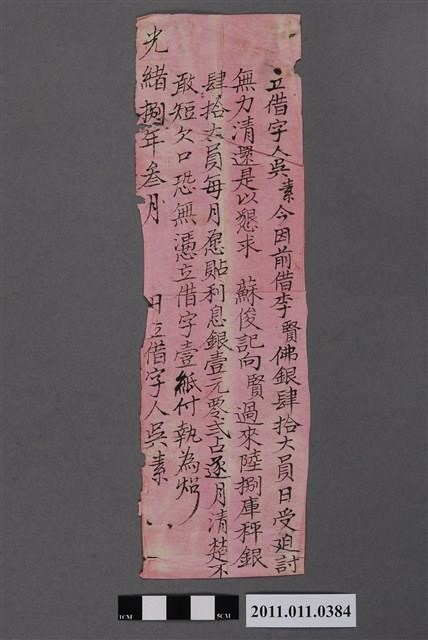 立借字人吳素今因前借李賢佛銀肆拾大員日受廹討
無力清還是以懇求　蘇俊記向賢過來陸捌庫秤銀
肆拾大員每月愿貼利息銀壹元零弍占逐月清楚不
敢短欠口恐無憑立借字壹紙付執為炤
光緒捌年叁月　日立借字人吳素
1CM 5CM
2011.011.0384